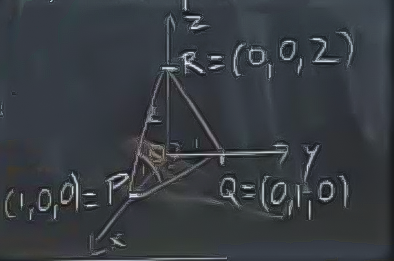 Z
R = (0,0,2)
Y
(1,0,0) = P
Q = (0,1,0)
X